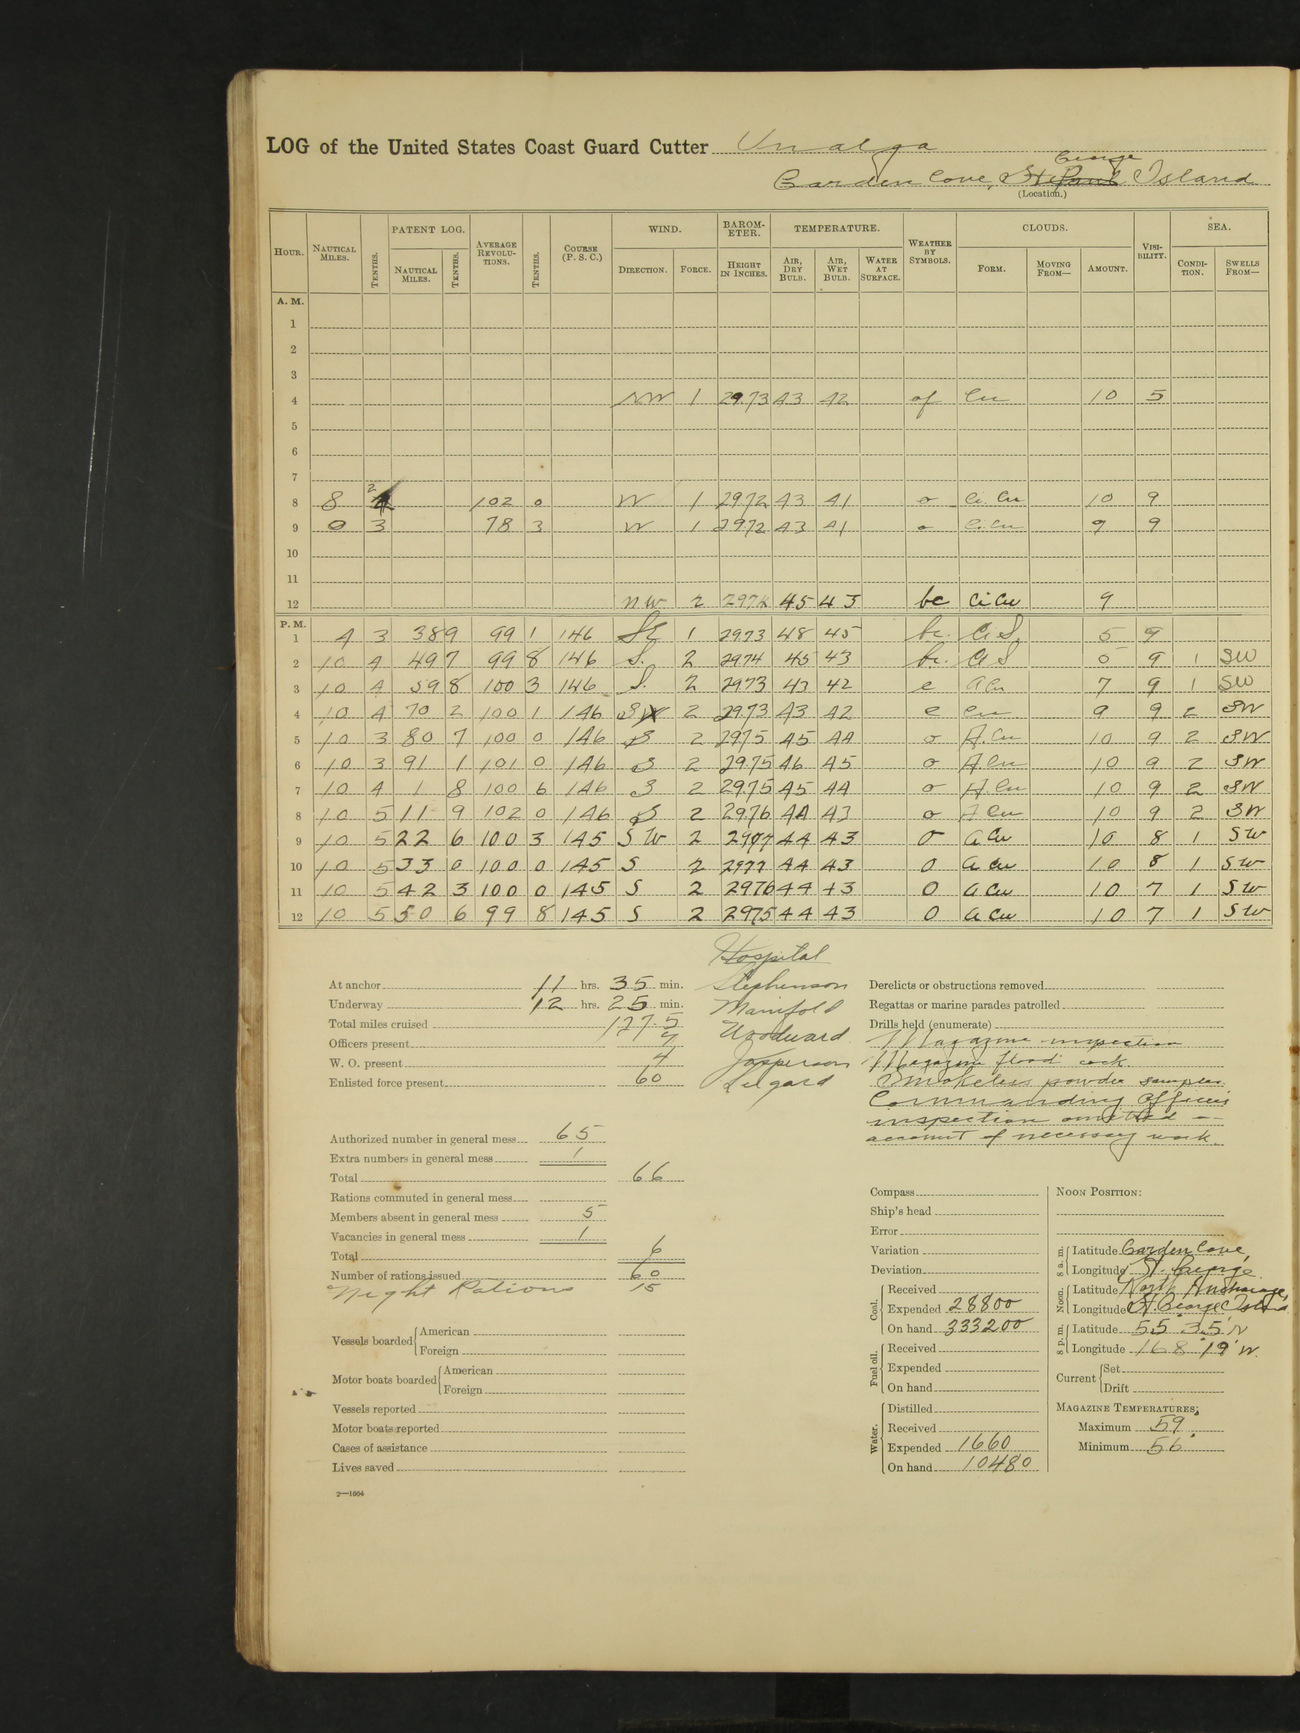 LOG of the United States Coast Guard Cutter Unalga
George
Garden Cove, St Paul Island
(Location.)
HOUR. NAUTICAL MILES. TENTHS. PATENT LOG. NAUTICAL MILES. TENTHS. AVERAGE REVOLUTIONS. TENTHS. COURSE (P. S. C.) WIND. DIRECTION. FORCE. BAROMETER. HEIGHT IN INCHES. TEMPERATURE. AIR, DRY BULB. AIR, WET BULB. WATER AT SURFACE. WEATHER BY SYMBOLS. CLOUDS. FORM. MOVING FROM— AMOUNT. VISIBILITY. SEA. CONDITION. SWELLS FROM—
A. M.
1
2
3
4 NW 1 29.73 43 42 of Cu 10 5
5
6
7
8 8 2 102 0 W 1 2972 43 41 o Ci. Cu 10 9
9 0 3 78 3 W 1 2972 43 41 o Ci. Cu 9 9
10
11
12 NW 2 2974 45 43 bc Ci Cu 9
P. M.
1 4 3 38 9 99 1 146 SE 1 2973 48 45 bc. Ci S. 5 9
2 10 4 49 7 99 8 146 S. 2 2974 45 43 bc. Ci S 5 9 1 SW
3 10 4 59 8 100 3 146 S. 2 2973 43 42 c A Cu 7 9 1 SW
4 10 4 70 2 100 1 146 S 2 29.73 43 42 c Cu 9 9 2 SW
5 10 3 80 7 100 0 146 S 2 2975 45 44 o A. Cu 10 9 2 SW
6 10 3 91 1 101 0 146 S 2 29.75 46 45 o A Cu 10 9 2 SW
7 10 4 1 8 100 6 146 S 2 29.75 45 44 o A. Cu 10 9 2 SW
8 10 5 11 9 102 0 146 S 2 2976 44 43 o A Cu 10 9 2 SW
9 10 5 22 6 100 3 145 SW 2 2977 44 43 o A Cu 10 8 1 SW
10 10 5 33 0 100 0 145 S 2 2977 44 43 O A Cu 10 8 1 SW
11 10 5 42 3 100 0 145 S 2 2976 44 43 O A Cu 10 7 1 SW
12 10 5 50 6 99 8 145 S 2 2975 44 43 O A Cu 10 7 1 SW
Hospital
At anchor 11 hrs. 35 min. Stephenson Derelicts or obstructions removed
Underway 12 hrs. 25 min. Manifold Regattas or marine parades patrolled
Total miles cruised 127.5 Woodward Drills held (enumerate)
Officers present 7 Magazine inspection
W. O. present 4 Jasperson Magazine flood cock
Enlisted force present 60 Lugard Smokeless powder samples.
Commanding Officers
inspection omitted —
Authorized number in general mess 65 account of necessary work.
Extra numbers in general mess 1
Total 66
Rations commuted in general mess
Members absent in general mess 5
Vacancies in general mess 1
Total 6
Number of rations issued 60
Night Rations 15
Vessels boarded American
Foreign
Motor boats boarded American
Foreign
Vessels reported
Motor boats reported
Cases of assistance
Lives saved
2—1664
Compass
Ship's head
Error
Variation
Deviation
Coal. Received
Expended 28800
On hand 333200
Fuel oil. Received
Expended
On hand
Water. Distilled
Received
Expended 1660
On hand 10480
NOON POSITION:
8 a. m. Latitude Garden Cove,
Longitude St. George
Noon. Latitude North Anchorage,
Longitude St George Island
8 p. m. Latitude 55° 35' N
Longitude 168° 19' W.
Current Set
Drift
MAGAZINE TEMPERATURES:
Maximum 59°
Minimum 56°